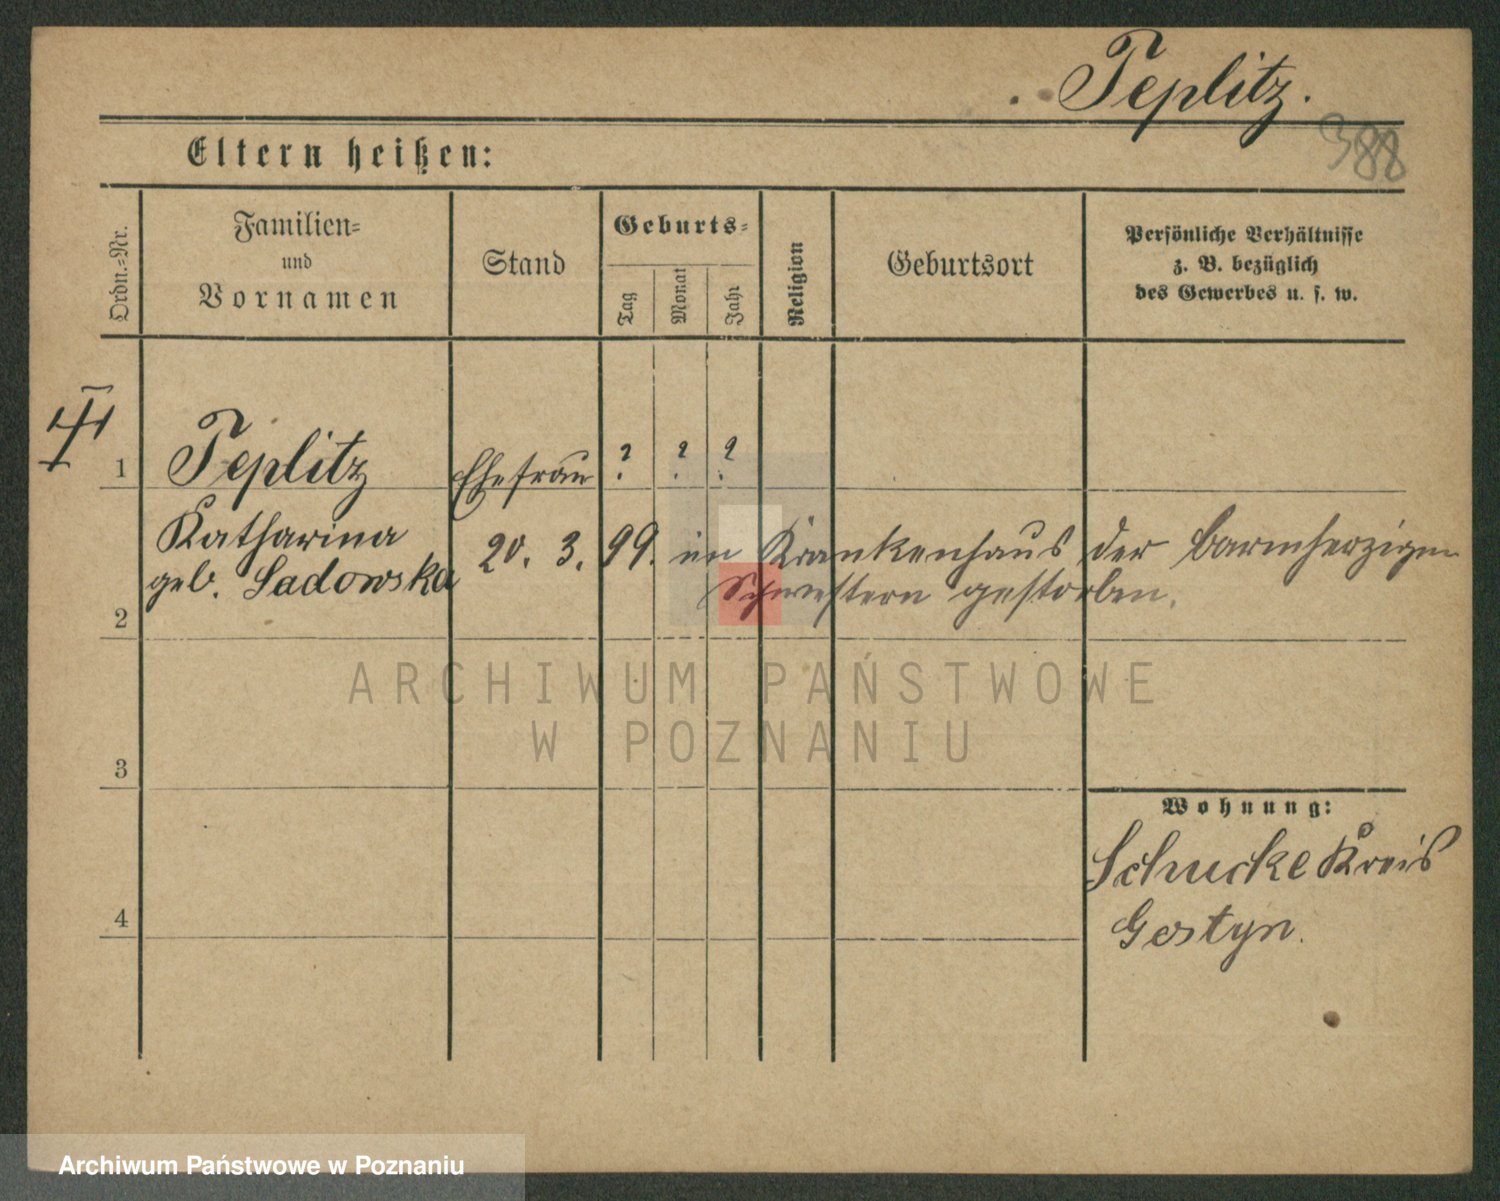 Teplitz.
388
Eltern heißen:
Ordn.-Nr.
Familien-
und
Vornamen
Stand
Geburts-
Tag
Monat
Jahr
Religion
Geburtsort
Persönliche Verhältnisse
z. B. bezüglich
des Gewerbes u. s. w.
1 Teplitz Ehefrau ? ? ?
Katharina
geb. Sadowska
20. 3. 99. im Krankenhaus der barmherzigen
Schwestern gestorben.
2
ARCHIWUM PAŃSTWOWE
W POZNANIU
3
Wohnung:
Schucke Kreis
Gostyn.
4
Archiwum Państwowe w Poznaniu